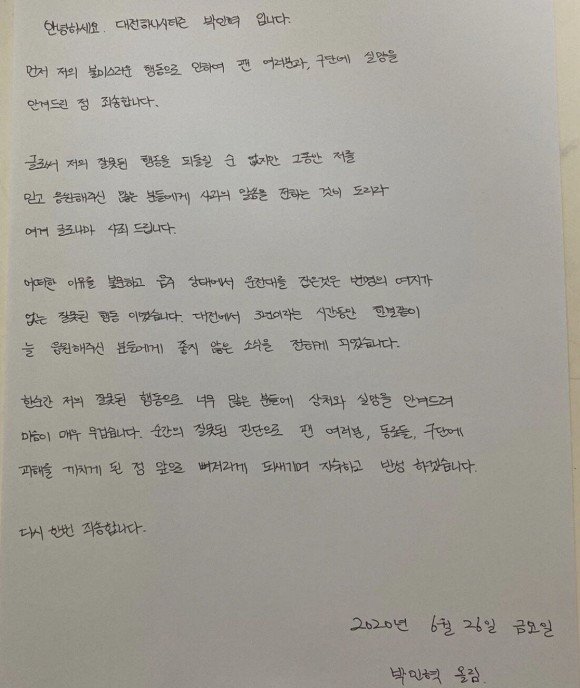 안녕하세요. 대전하나시티즌 박인혁 입니다.
먼저 저의 불미스러운 행동으로 인하여 팬 여러분과, 구단에 실망을
안겨드린 점 죄송합니다.
글로써 저의 잘못된 행동을 되돌릴 순 없지만 그동안 저를
믿고 응원해주신 많은 분들에게 사과의 말씀을 전하는 것이 도리라
여겨 글로나마 사죄 드립니다.
어떠한 이유를 불문하고 음주 상태에서 운전대를 잡은것은 변명의 여지가
없는 잘못된 행동 이었습니다. 대전에서 3년이라는 시간동안 한결같이
늘 응원해주신 분들에게 좋지 않은 소식을 전하게 되었습니다.
한순간 저의 잘못된 행동으로 너무 많은 분들에 상처와 실망을 안겨드려
마음이 매우 무겁습니다. 순간의 잘못된 판단으로 팬 여러분, 동료들, 구단에
피해를 끼치게 된 점 앞으로 뼈저리게 되새기며 자숙하고 반성 하겠습니다.
다시 한번 죄송합니다.
2020년 6월 26일 금요일
박인혁 올림.